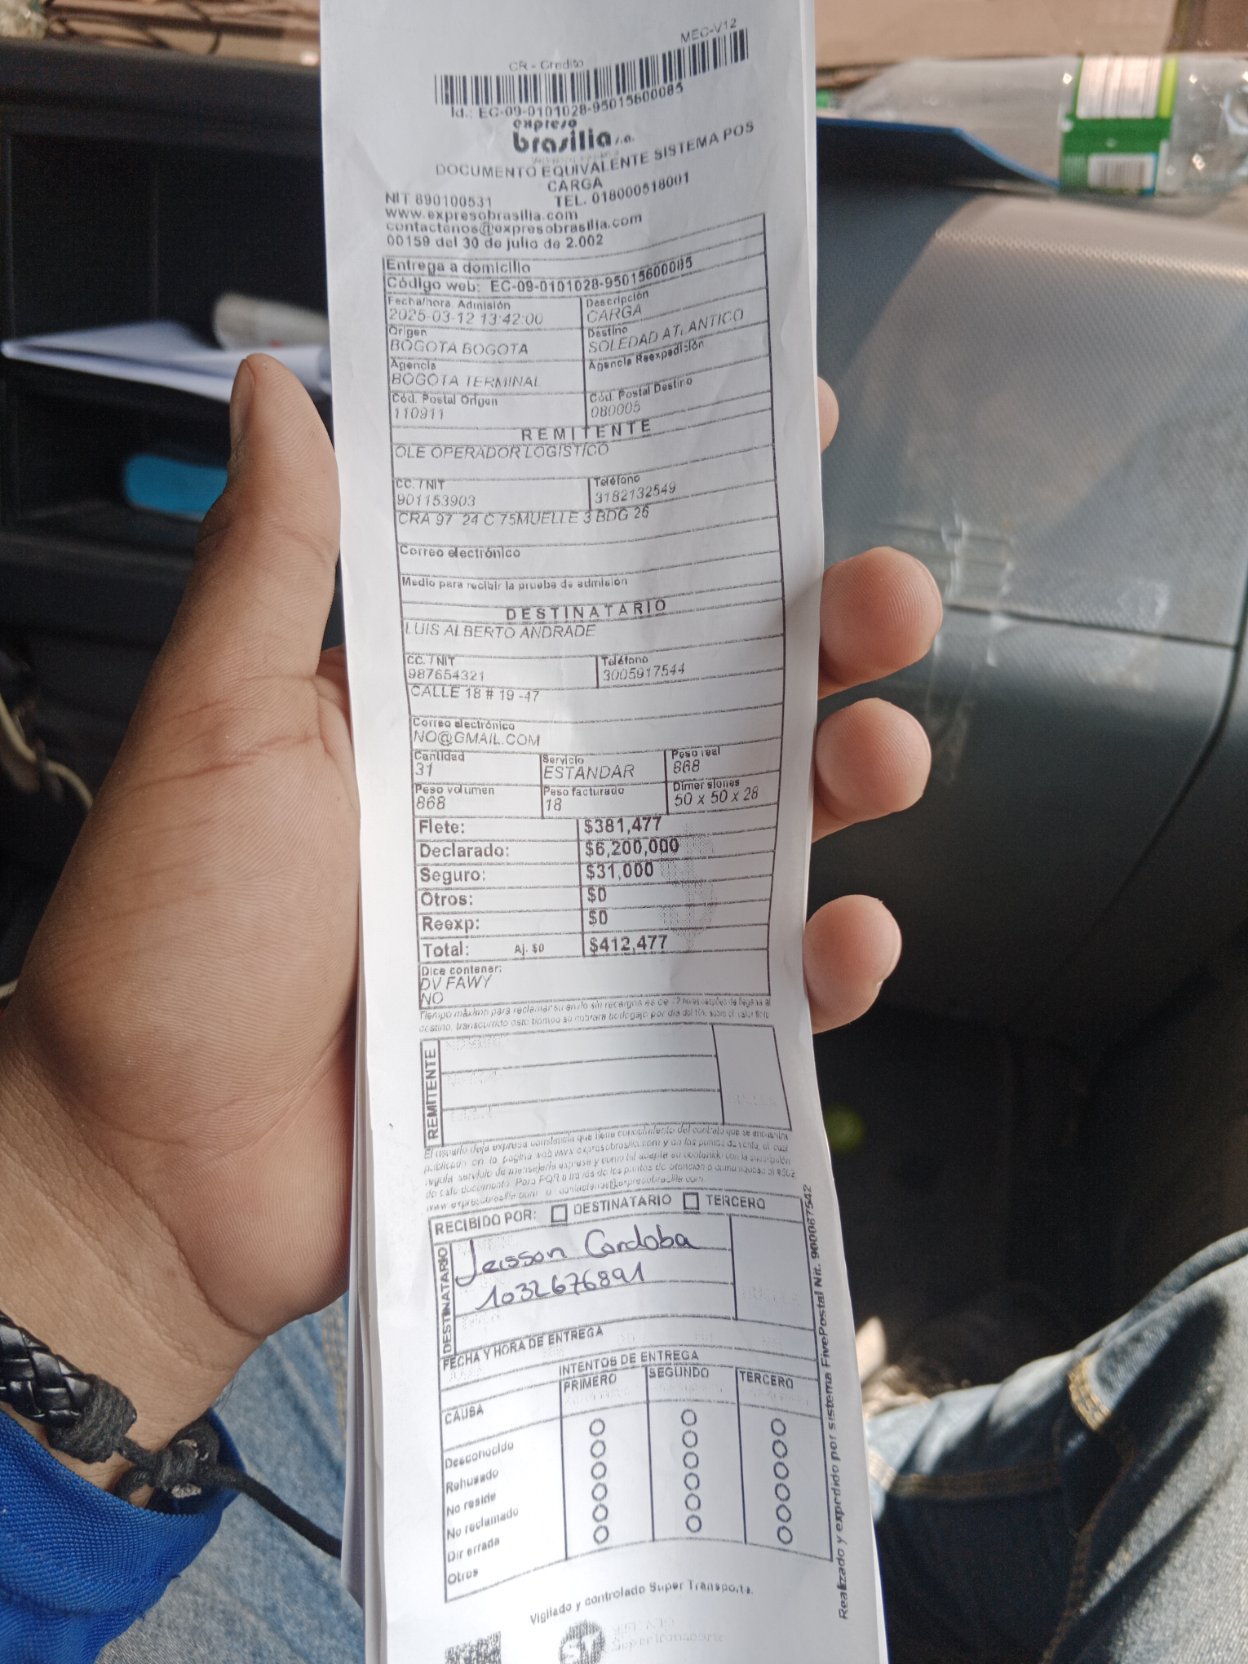 MEC-V12
CR - Credito
Id.: EC-09-0101028-95015600085
expreso
brasilia s.a.
DOCUMENTO EQUIVALENTE SISTEMA POS
CARGA
NIT 890100531 TEL. 018000518001
www.expresobrasilia.com
contactenos@expresobrasilia.com
00159 del 30 de julio de 2.002
Entrega a domicilio
Código web: EC-09-0101028-95015600085
Fecha/hora Admisión Descripción
2025-03-12 13:42:00 CARGA
Origen Destino
BOGOTA BOGOTA SOLEDAD ATLANTICO
Agencia Agencia Reexpedición
BOGOTA TERMINAL
Cód. Postal Origen Cód. Postal Destino
110911 080005
REMITENTE
OLE OPERADOR LOGISTICO
CC. / NIT Teléfono
901153903 3182132549
CRA 97 24 C 75MUELLE 3 BDG 26
Correo electrónico
Medio para recibir la prueba de admisión
DESTINATARIO
LUIS ALBERTO ANDRADE
CC. / NIT Teléfono
987654321 3005917544
CALLE 18 # 19 -47
Correo electrónico
NO@GMAIL.COM
Cantidad Servicio Peso real
31 ESTANDAR 868
Peso volumen Peso facturado Dimensiones
868 18 50 x 50 x 28
Flete: $381,477
Declarado: $6,200,000
Seguro: $31,000
Otros: $0
Reexp: $0
Total: Aj. $0 $412,477
Dice contener:
DV FAWY
NO
Tiempo máximo para reclamar su envío sin recargos es de 72 horas después de llegada al
destino, transcurrido este tiempo se cobrara bodegaje por día del 10% sobre el valor flete
REMITENTE
El usuario deja expresa constancia que tiene conocimiento del contrato que se encuentra
publicado en la página web www.expresobrasilia.com y en los puntos de venta, el cual
regula servicio de mensajería expresa y como tal acepta su contenido con la suscripción
de este documento. Para PQR a través de los puntos de atención o
www.expresobrasilia.com o contactenos@expresobrasilia.com
RECIBIDO POR: DESTINATARIO TERCERO
DESTINATARIO
Jeisson Cordoba
1032676891
FECHA Y HORA DE ENTREGA
INTENTOS DE ENTREGA
CAUSA PRIMERO SEGUNDO TERCERO
Desconocido
Rehusado
No reside
No reclamado
Dir errada
Otros
Realizado y expedido por sistema FivePostal Nit. 900087542
Vigilado y controlado Super Transporte.